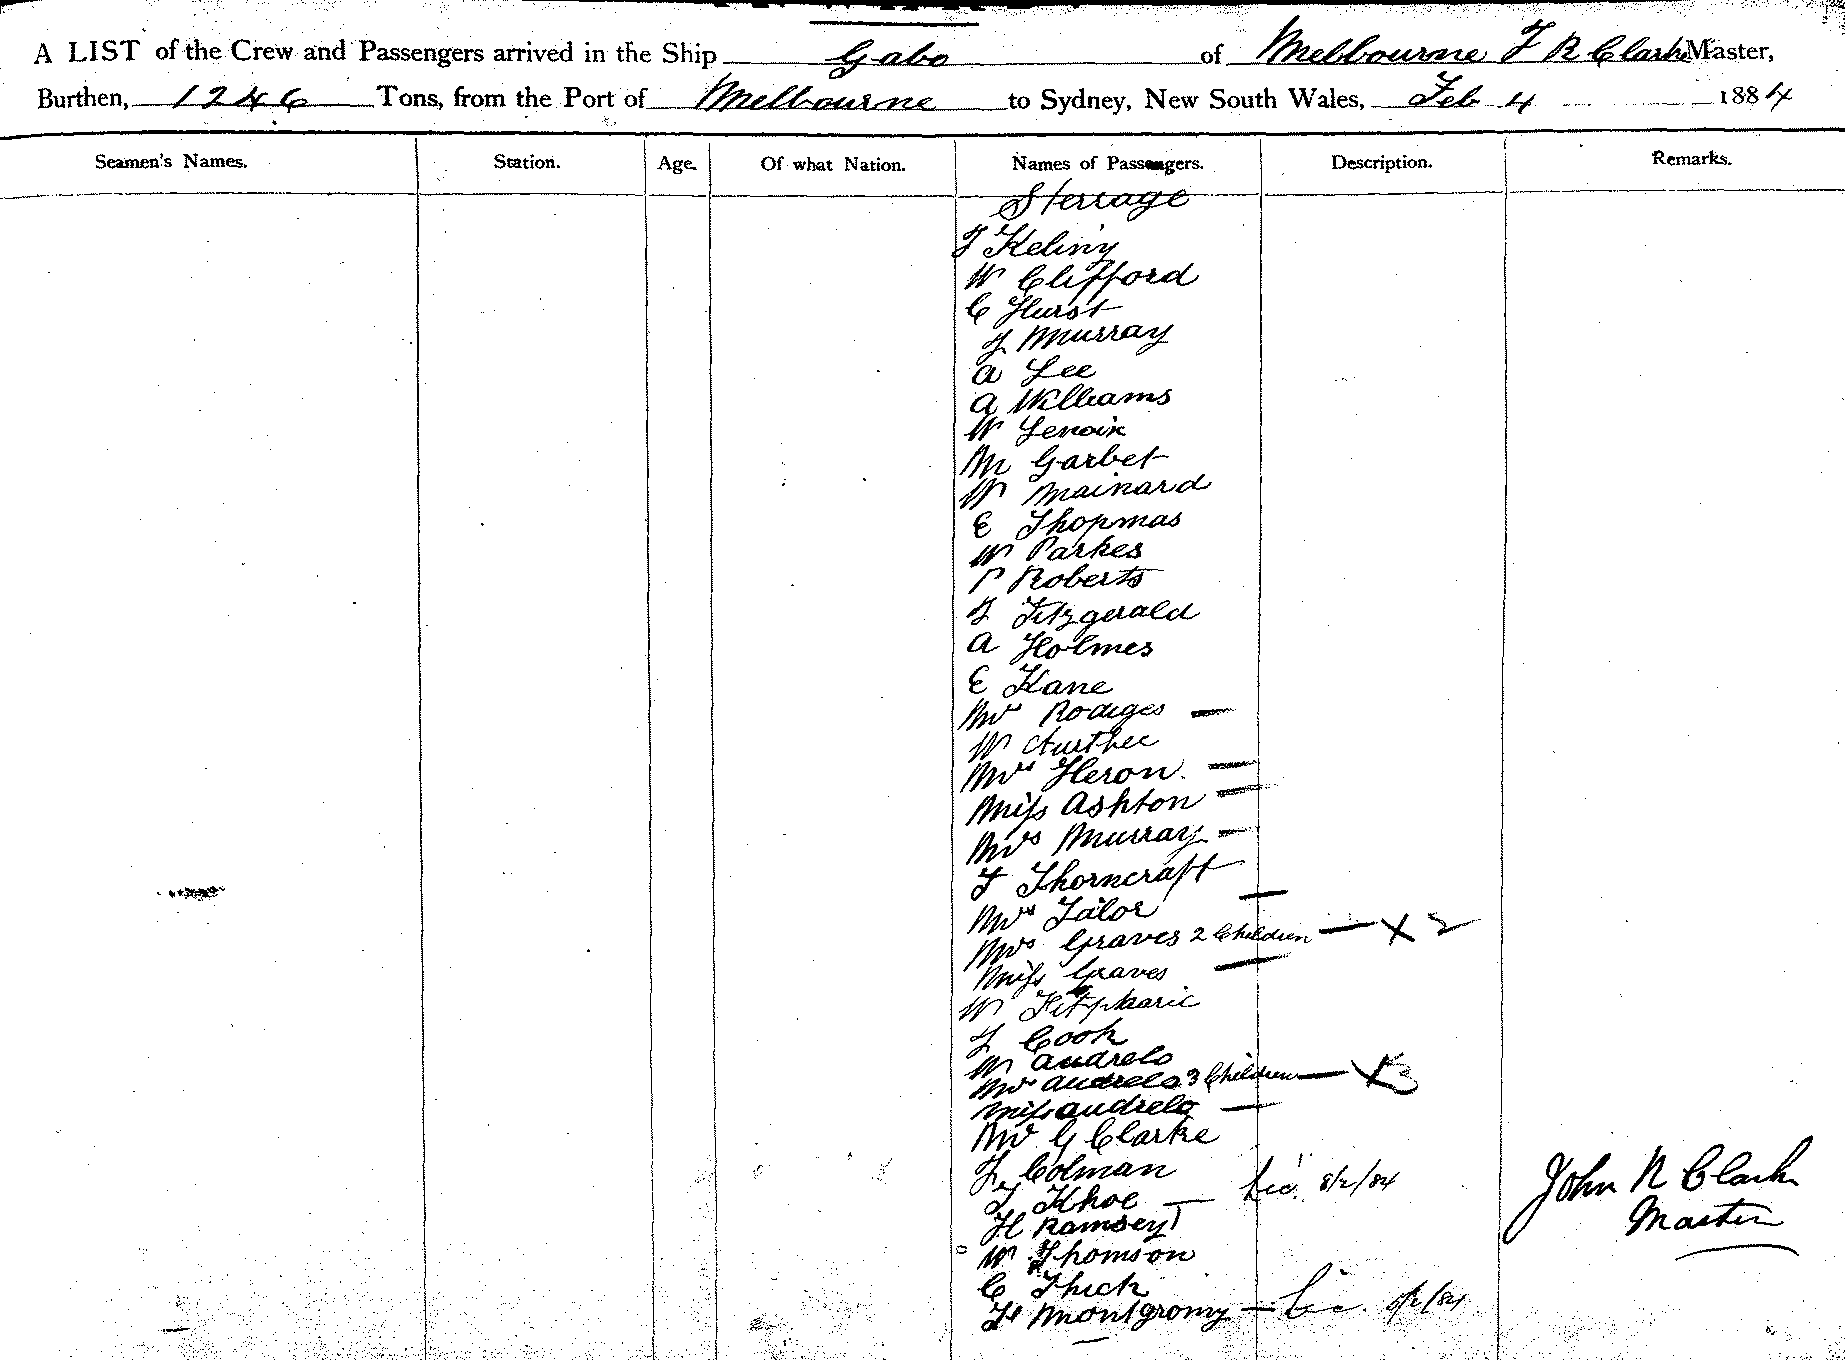 A LIST of the Crew and Passengers arrived in the Ship Gabo of Melbourne J R Clark Master,
Burthen, 1246 Tons, from the Port of Melbourne to Sydney, New South Wales, Feb 4 1884
Seamen's Names. Station. Age. Of what Nation. Names of Passengers. Description. Remarks.
Sterrage
J Keliny
W Clifford
C Hurst
J Murray
A Lee
A Williams
W Lenoir
M Garbet
W Mainard
E Thopmas
W Parkes
P Roberts
J Fitzgerald
A Holmes
E Kane
Mr Rodiges —
W
Mrs Heron —
Miss Ashton —
Mrs Murray —
J Thorncraft
Mrs Talor —
Mrs Graves 2 Children — X 2
Miss Graves —
W
J Cook
W Audrelo
Mrs Audrelo 3 Children — X 3
Miss Audrelo —
Mr G Clarke
J Colman
J Khoe — 8/2/84
H Ramsey
W Thomson
C Thick
Montgromy —
John R Clark
Master